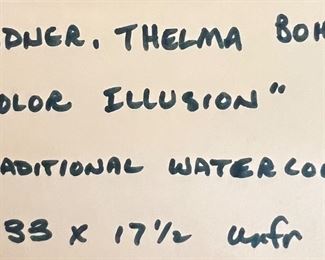 DNER, THELMA BOH
OLOR ILLUSION"
ADITIONAL WATERCO
33 x 17½ unfr